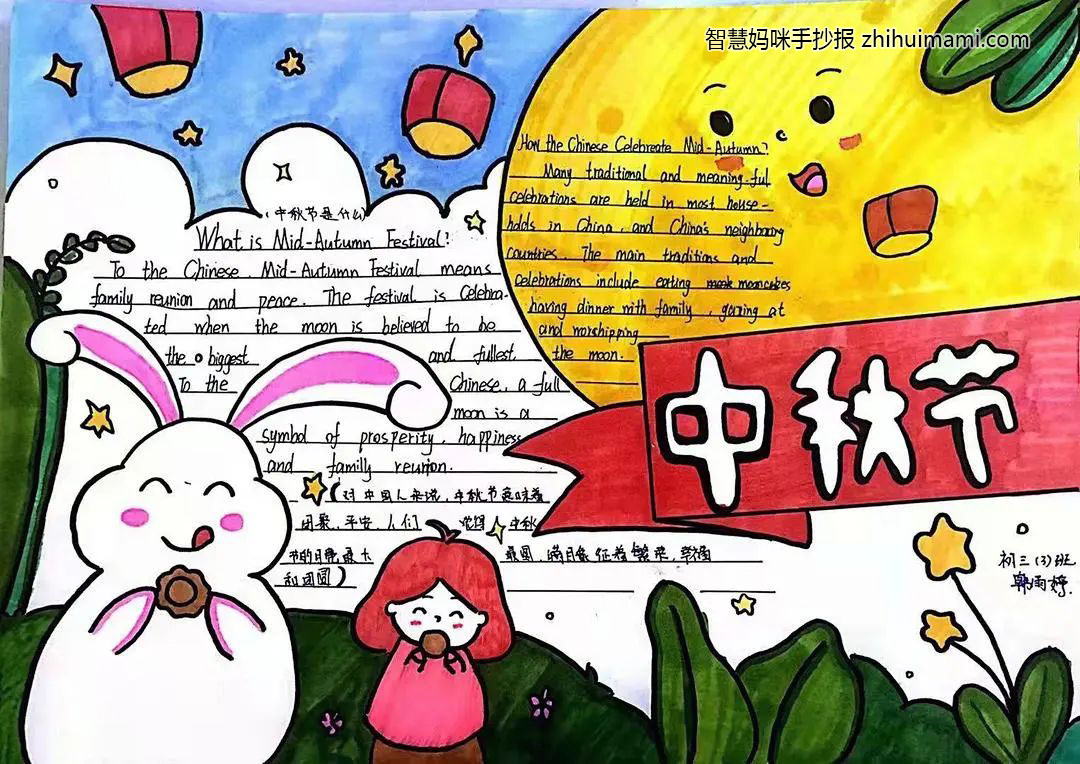 智慧妈咪手抄报 zhihuimami.com
(中秋节是什么)
What is Mid-Autumn Festival?
To the Chinese, Mid-Autumn Festival means
family reunion and peace. The festival is celebra-
ted when the moon is believed to be
the biggest and fullest.
To the Chinese, a full
moon is a
symbol of prosperity, happiness
and family reunion.
(对中国人来说,中秋节意味着
团聚,平安,人们 中秋
节的月亮最大 最圆,满月象征着繁荣,幸福
和团圆)
How the Chinese Celebreate Mid-Autumn?
Many traditional and meaning-ful
celebrations are held in most house-
holds in China, and China's neighboring
countries. The main traditions and
celebrations include eating mooncakes
having dinner with family, gazing at
and worshipping
the moon.
中秋节
初三(3)班
韩雨婷.